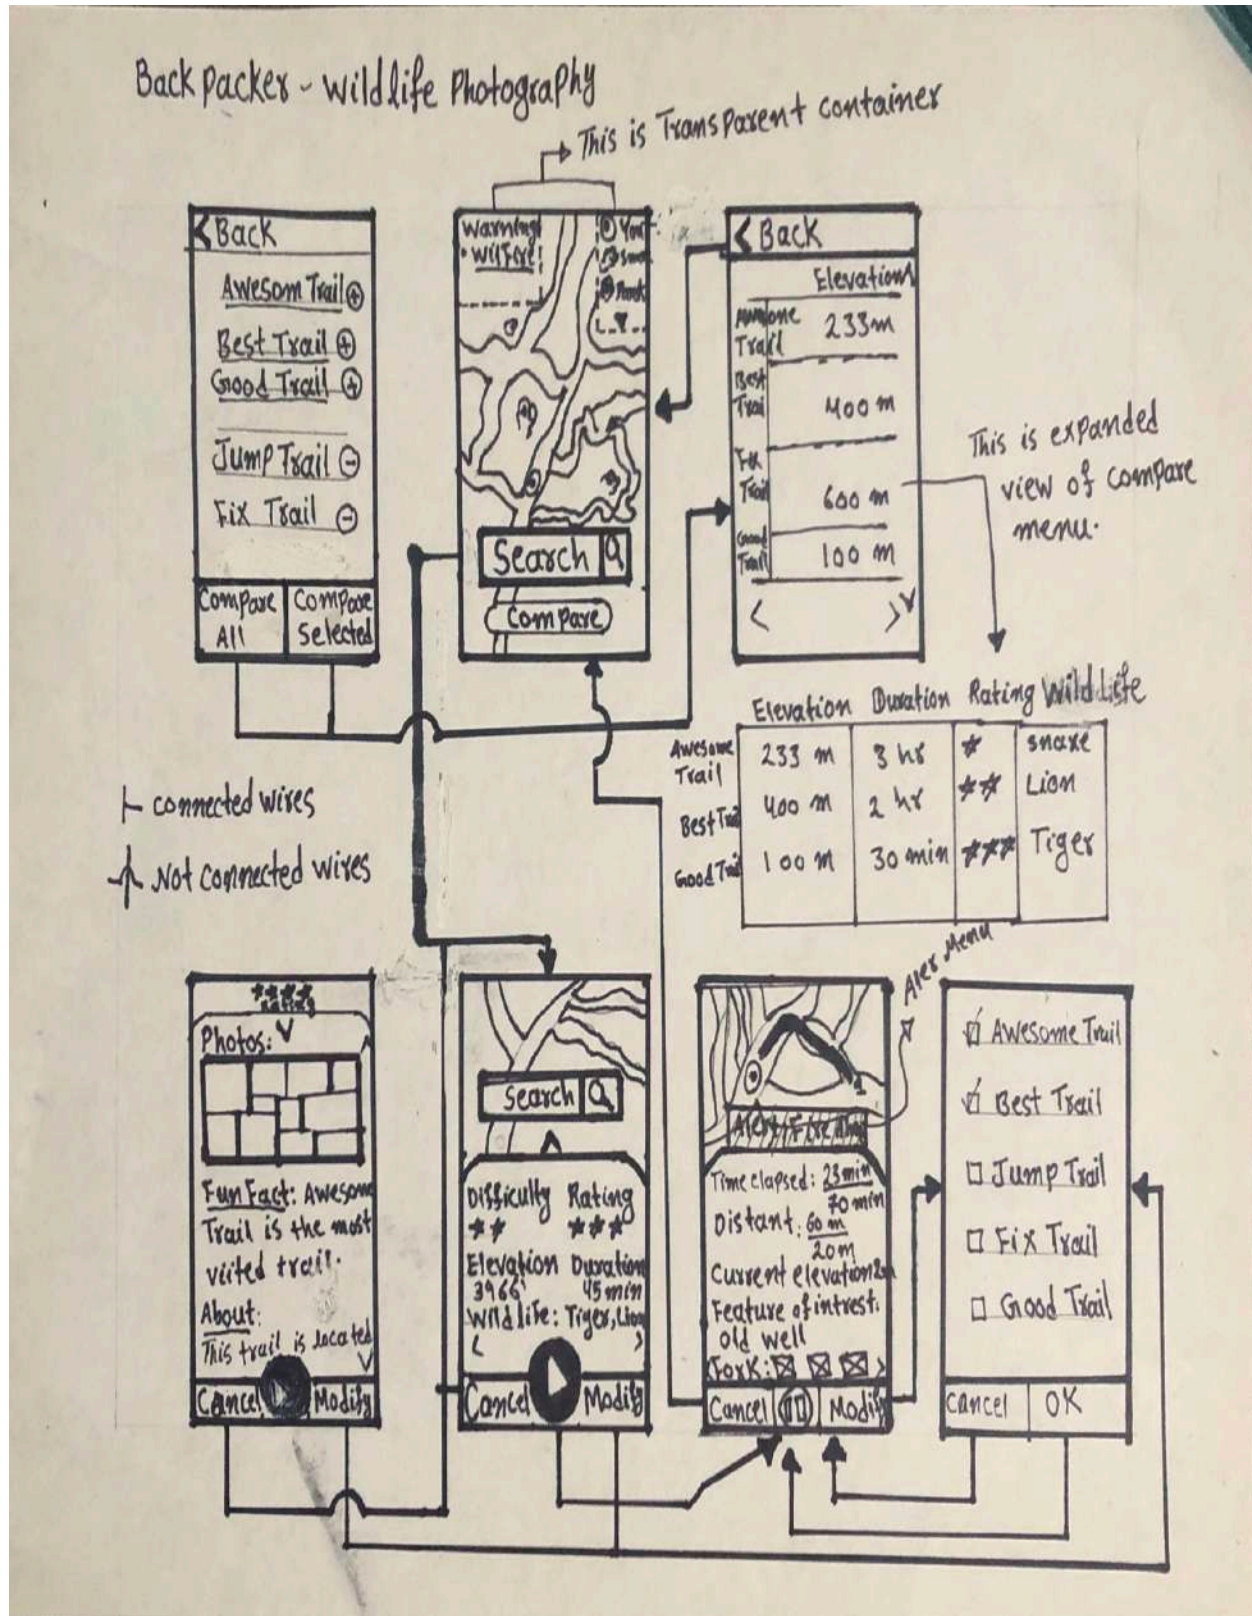 Backpacker - Wildlife Photography
This is Transparent container
Back
Awesom Trail
Best Trail
Good Trail
Jump Trail
Fix Trail
Compare
All
Compare
Selected
Warning!
Wilfire
You
Search
Compare
Back
Elevation
Trail
233m
Best
Trail
400 m
Fix
Trail
600 m
Good
Trail
100 m
This is expanded
view of compare
menu.
Elevation Duration Rating Wild Life
Awesome
Trail
233 m 3 hr snake
Best Trail
400 m 2 hr Lion
Good Trail
100 m 30 min Tiger
connected wires
Not connected wires
Rating
Photos:
Fun Fact: Awesome
Trail is the most
visited trail.
About:
This trail is located
Cancel Modify
Search
Difficulty Rating
Elevation Duration
3966' 45 min
Wildlife: Tiger, Lion
Cancel Modify
Aler Menu
Alert Fire
Time elapsed: 23min
70 min
Distant: 60 m
20m
Current elevation
Feature of intrest:
old well
Fork:
Cancel Modify
Awesome Trail
Best Trail
Jump Trail
Fix Trail
Good Trail
Cancel OK